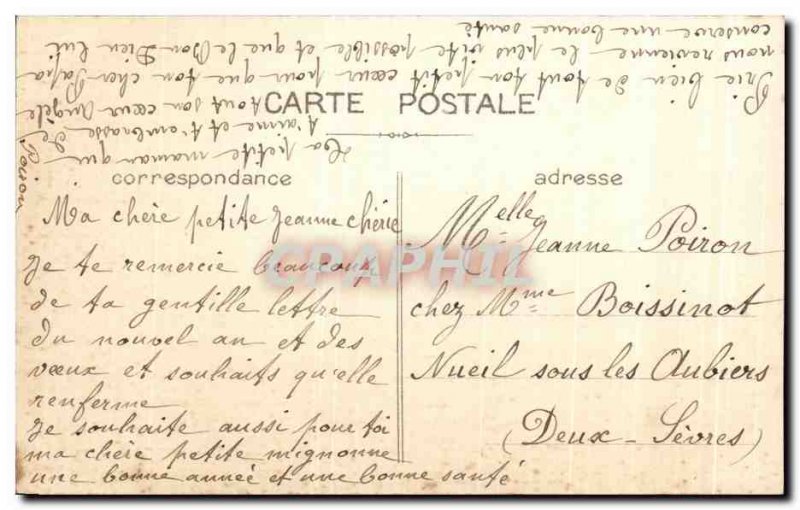 CARTE POSTALE
correspondance
adresse
Ma chère petite Jeanne chérie
Je te remercie beaucoup
de ta gentille lettre
du nouvel an et des
vœux et souhaits qu'elle
renferme
Je souhaite aussi pour toi
ma chère petite mignonne
une bonne année et une bonne santé
Prie bien de tout ton petit cœur pour que ton cher Papa
nous revienne le plus vite possible et que le Bon Dieu lui
conserve une bonne santé
Ta petite maman qui
t'aime et t'embrasse de
tout son cœur Angèle
Poiron
Melle Jeanne Poiron
chez Mme Boissinot
Nueil sous les Aubiers
(Deux-Sèvres)
CPAPHIL